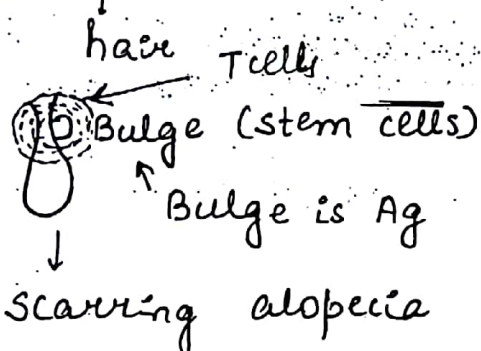 hair
T cells
Bulge (stem cells)
Bulge is Ag
scarring alopecia